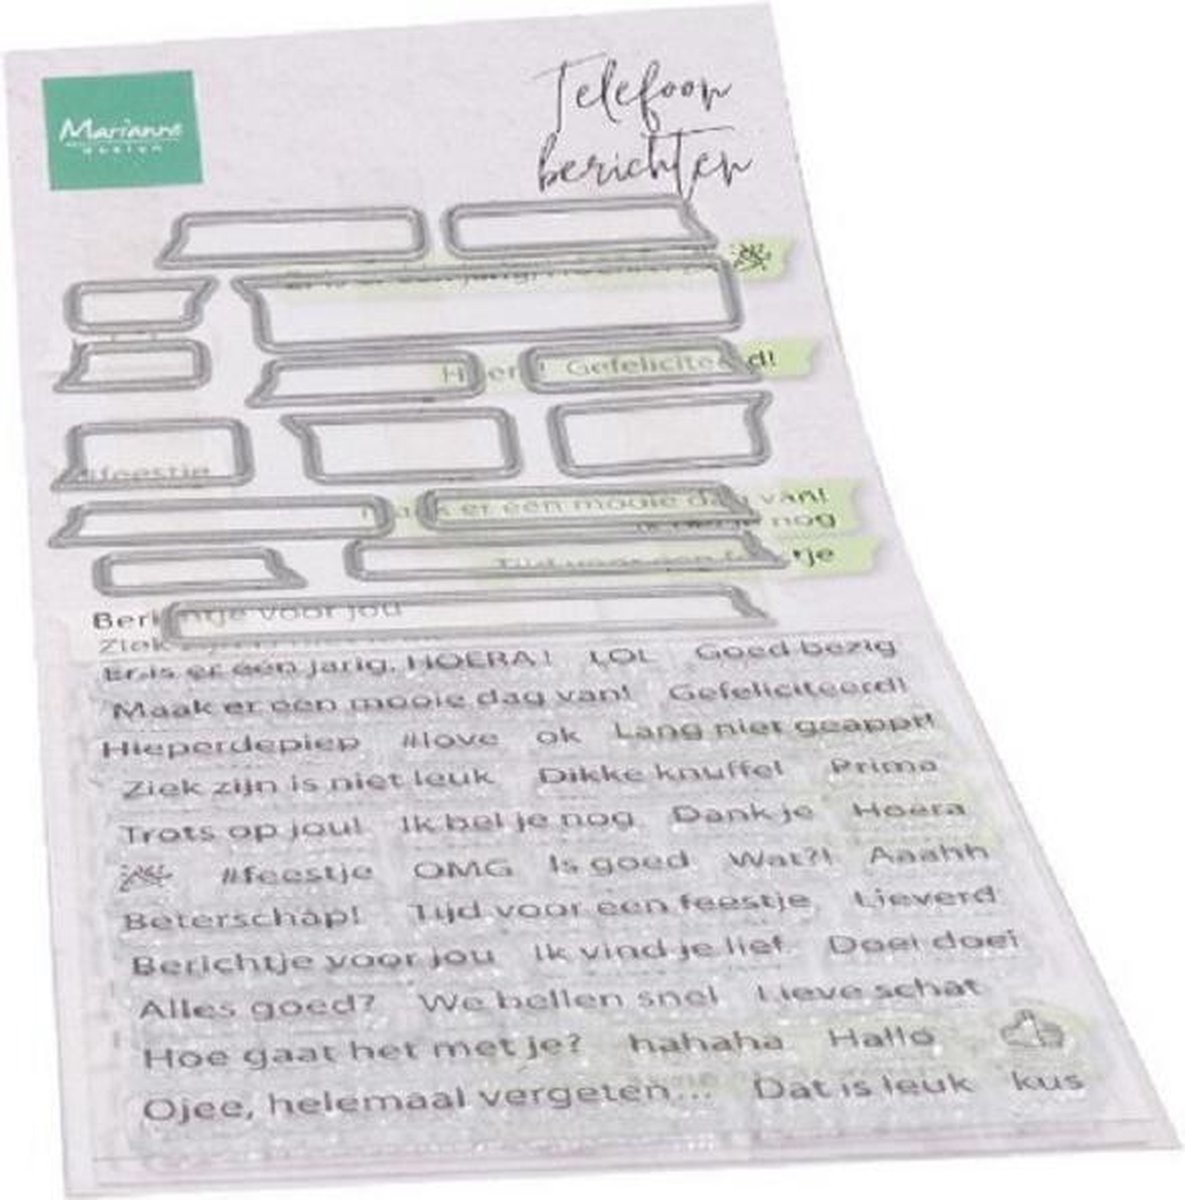 Marianne
design
Telefoon
berichten
Gefeliciteerd!
#feestje
Maak er een mooie dag van!
Ik bel je nog
Tijd voor een feestje
Berichtje voor jou
Ziek zijn is niet leuk
Er is er één jarig, HOERA! LOL Goed bezig
Maak er een mooie dag van! Gefeliciteerd!
Hieperdepiep #love ok Lang niet geappt!
Ziek zijn is niet leuk Dikke knuffel Prima
Trots op jou! Ik bel je nog Dank je Hoera
#feestje OMG Is goed Wat?! Aaahh
Beterschap! Tijd voor een feestje Lieverd
Berichtje voor jou Ik vind je lief Doei doei
Alles goed? We bellen snel Lieve schat
Hoe gaat het met je? hahaha Hallo
Ojee, helemaal vergeten... Dat is leuk kus